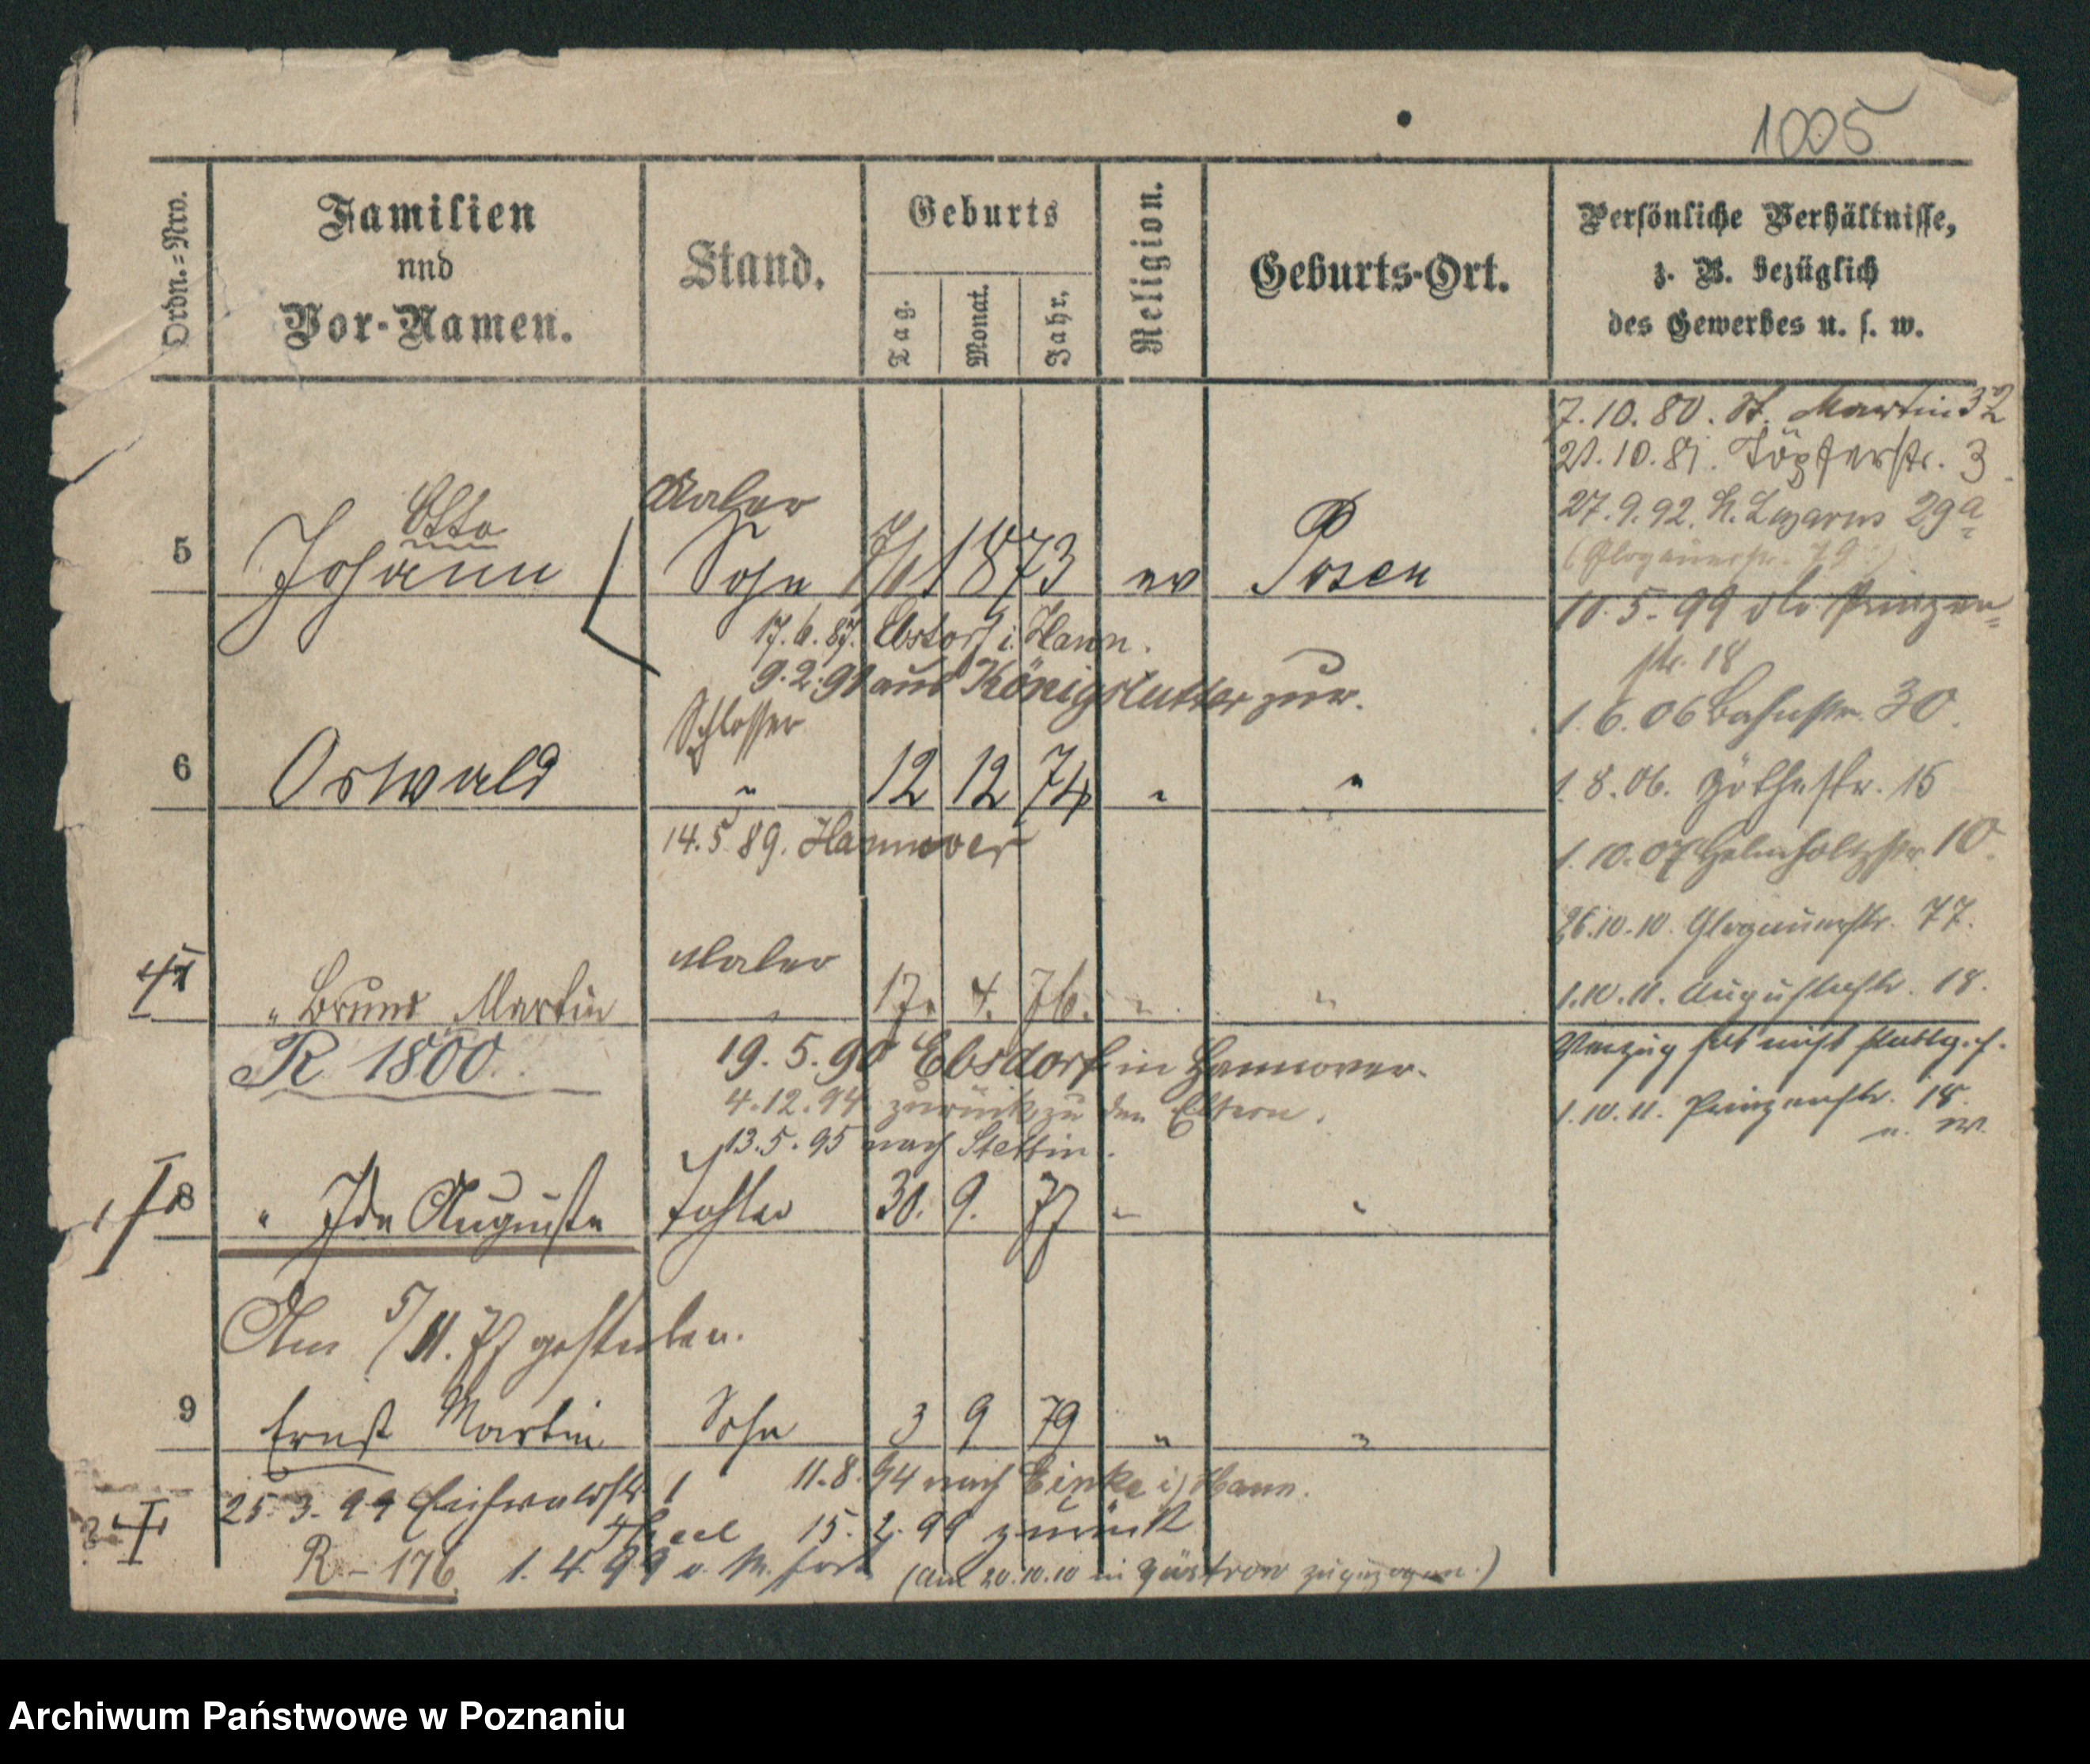 1005
Ordn.=Nro.
Familien
und
Vor-Namen.
Stand.
Geburts
Tag.
Monat.
Jahr.
Religion.
Geburts-Ort.
Persönliche Verhältnisse,
z. B. bezüglich
des Gewerbes u. s. w.
7.10.80. St. Martin 32
21.10.81. Töpferstr. 3
27.9.92. St. Lazarus 29a
(Glogauerstr.
10.5.99 Prinzen=
str. 18
1.6.06 Bahnstr. 30.
1.8.06. Götherstr. 15
1.10.07 Helmholtzstr. 10.
26.10.10. Glogauerstr. 77.
1.10.11. Augustastr. 18.
Umzug hat nicht stattg.f.
1.10.11. Prinzenstr. 18.
u. w.
Otto
Maler
5 Johann Sohn 7/1 1873 ev Posen
17.6.87. Ebstorf i. Hann.
9.2.91 aus Königslutter zur.
Schlosser
6 Oswald " 12 12 74 " "
14.5.89. Hannover
Maler
7 " Bruno Martin " 17. 4. 76. " "
R 1800.
19.5.90 Ebsdorf in Hannover.
4.12.94 zurück zu den Eltern.
13.5.95 nach Stettin.
8 " Ida Auguste Tochter 30. 9. 77 " "
Am 5/11.77 gestorben.
9 Ernst Martin Sohn 3 9 79 " "
11.8.94 nach i/Hann.
25.3.99 Eichwaldstr. 1
15.2.99 zurück
R - 176 1.4.99 fort (am 20.10.10 in Güstrow zugezogen.)
Archiwum Państwowe w Poznaniu